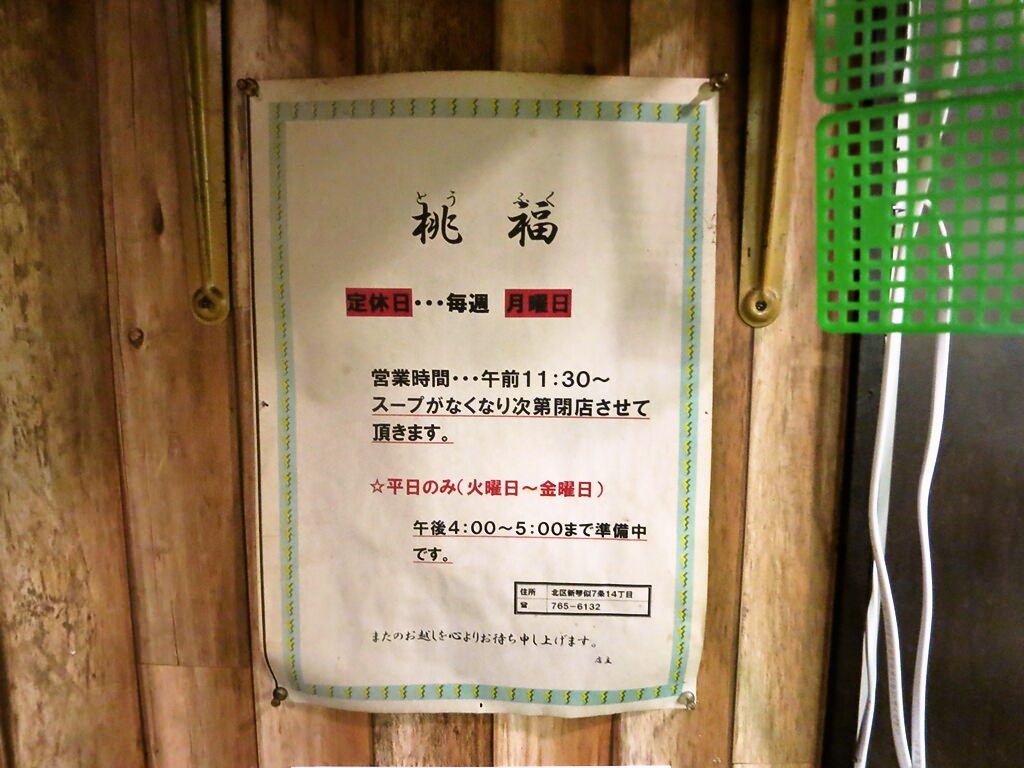 とう ふく
桃 福
定休日・・・毎週 月曜日
営業時間・・・午前11:30～
スープがなくなり次第閉店させて
頂きます。
☆平日のみ(火曜日～金曜日)
午後4:00～5:00まで準備中
です。
住所 北区新琴似7条14丁目
☎ 765-6132
またのお越しを心よりお待ち申し上げます。
店主